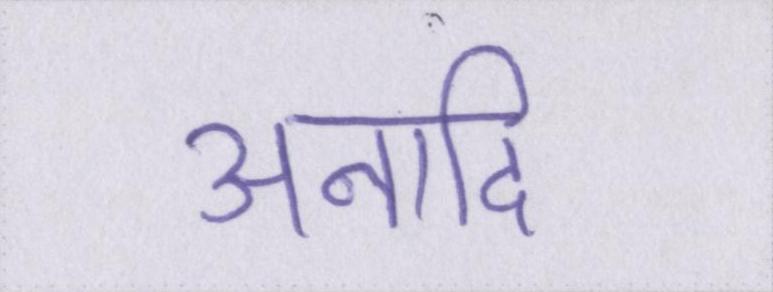 अनादि